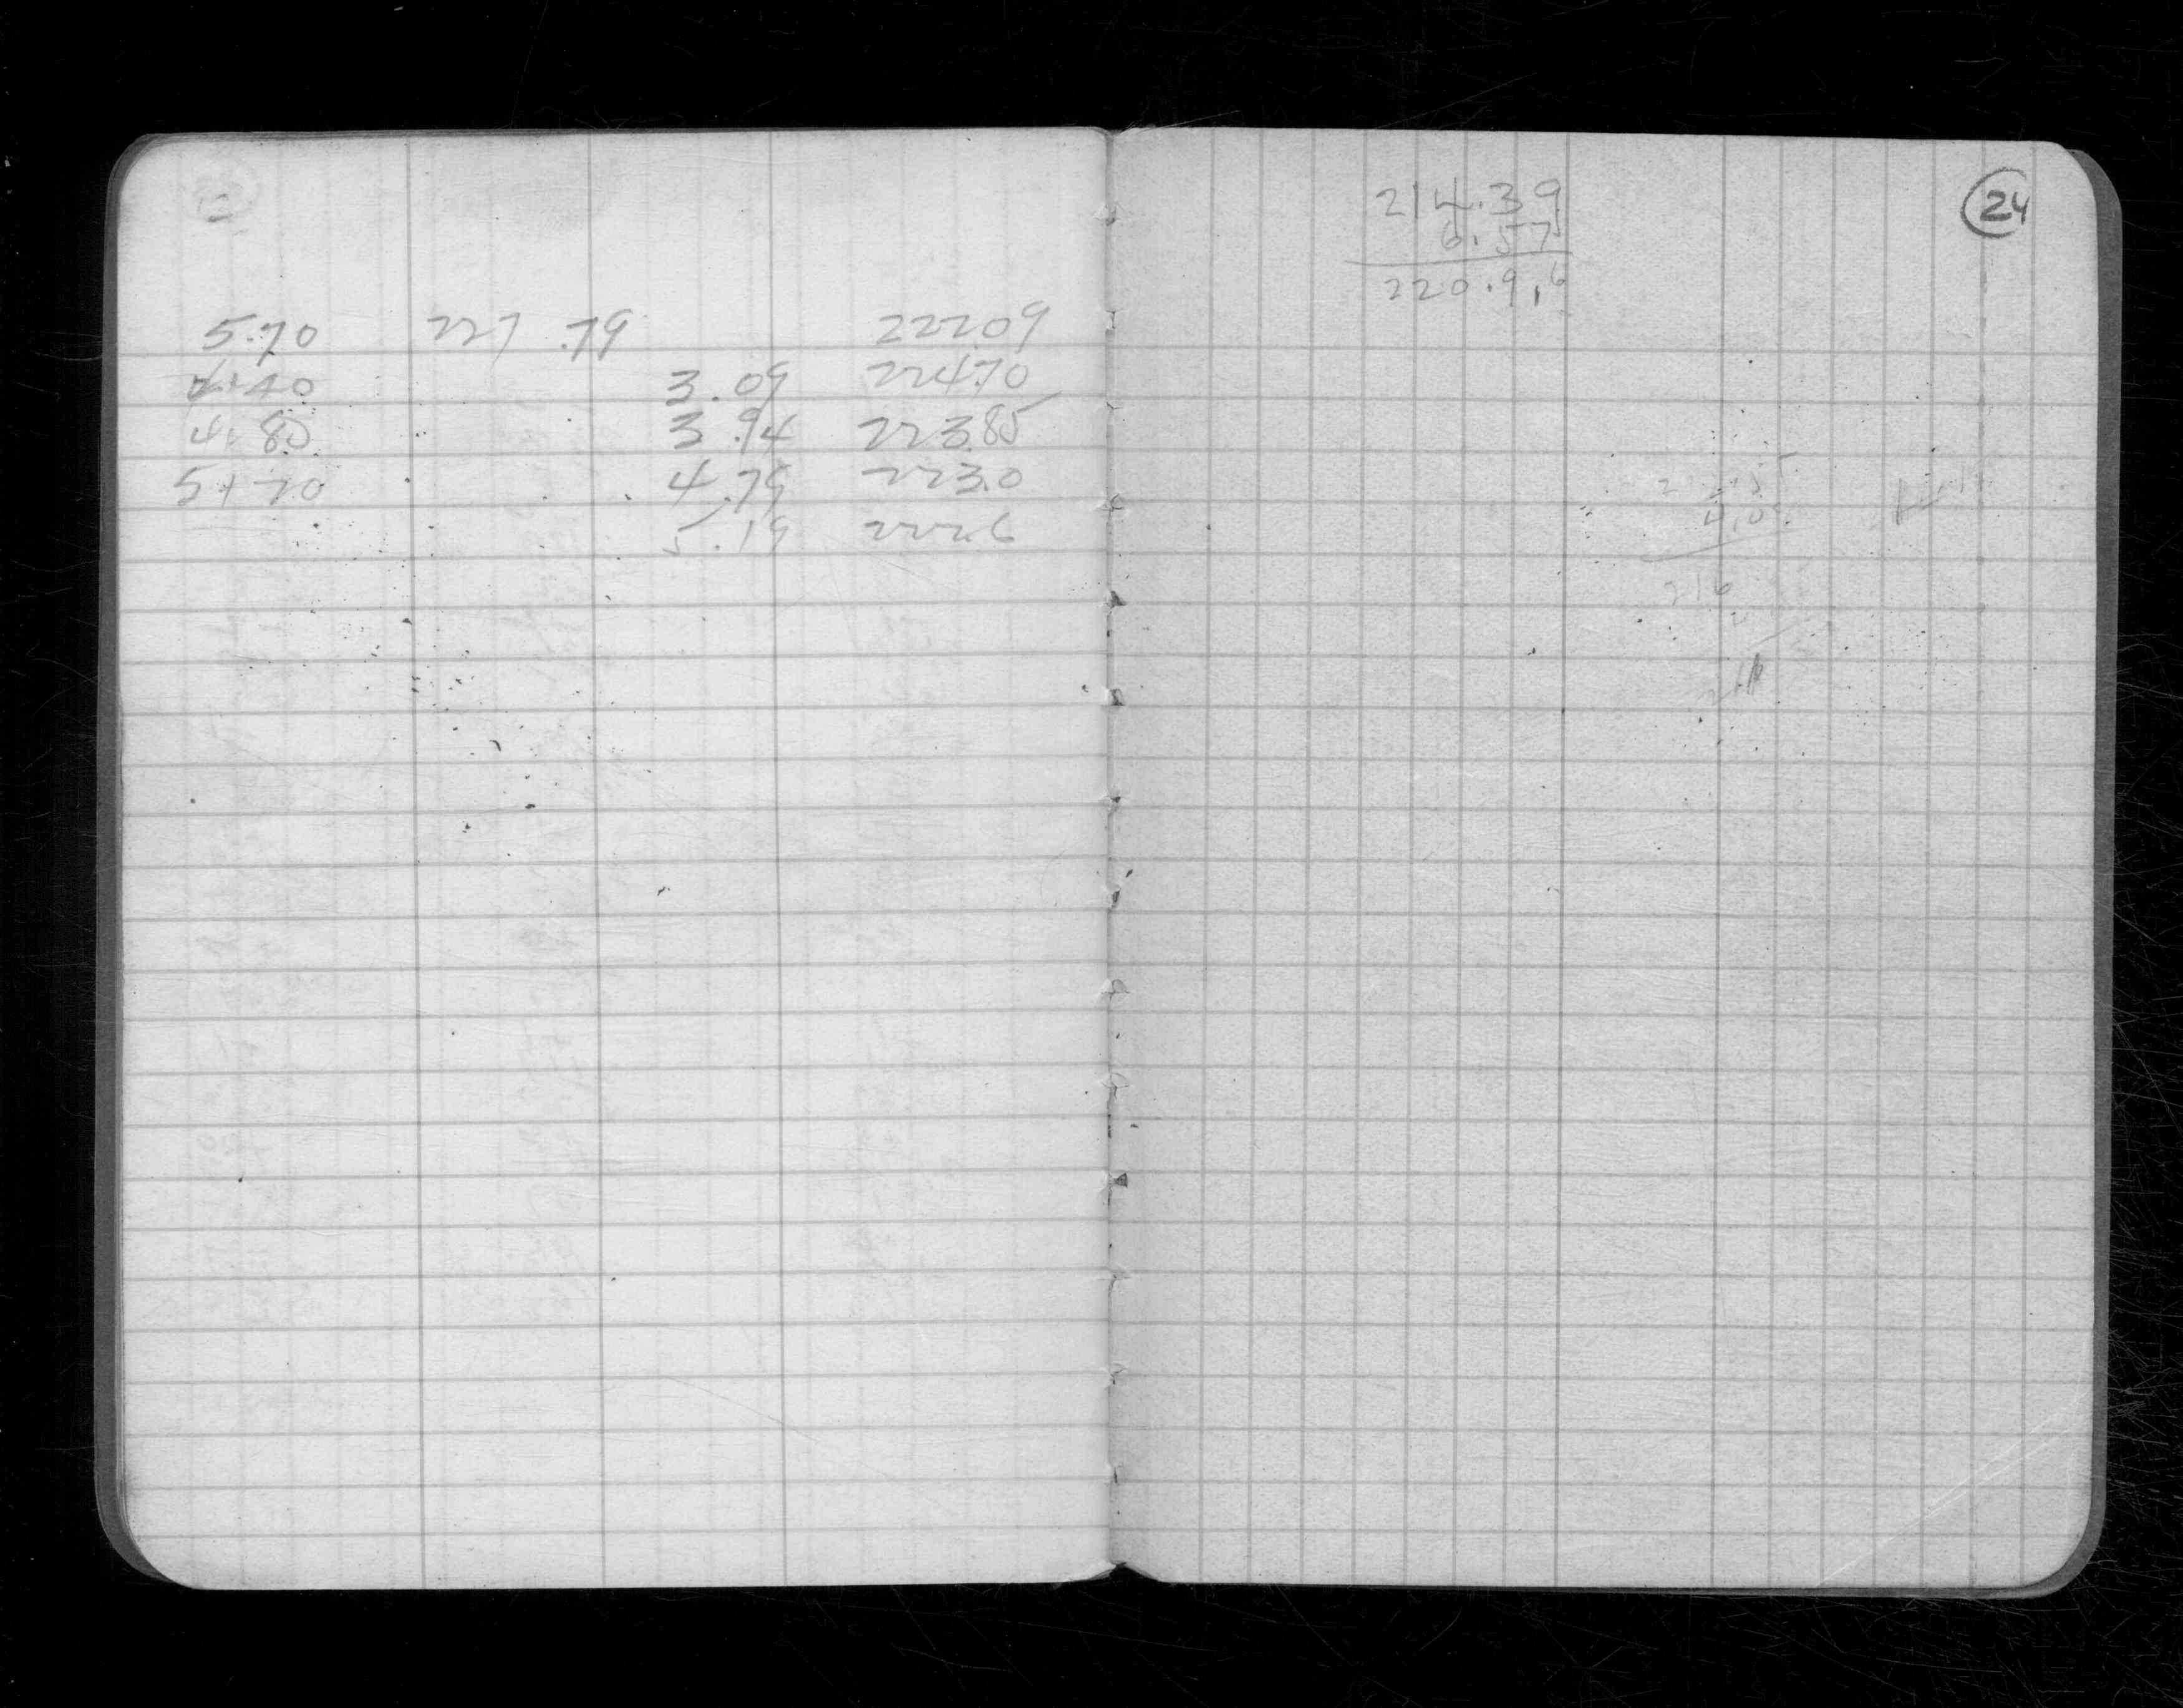 5.70 227.79 222.09
4+40 3.09 224.70
4+80 3.94 223.85
5+20 4.79 223.0
5.19 222.6
24
214.39
6.57
220.96
4.0
216